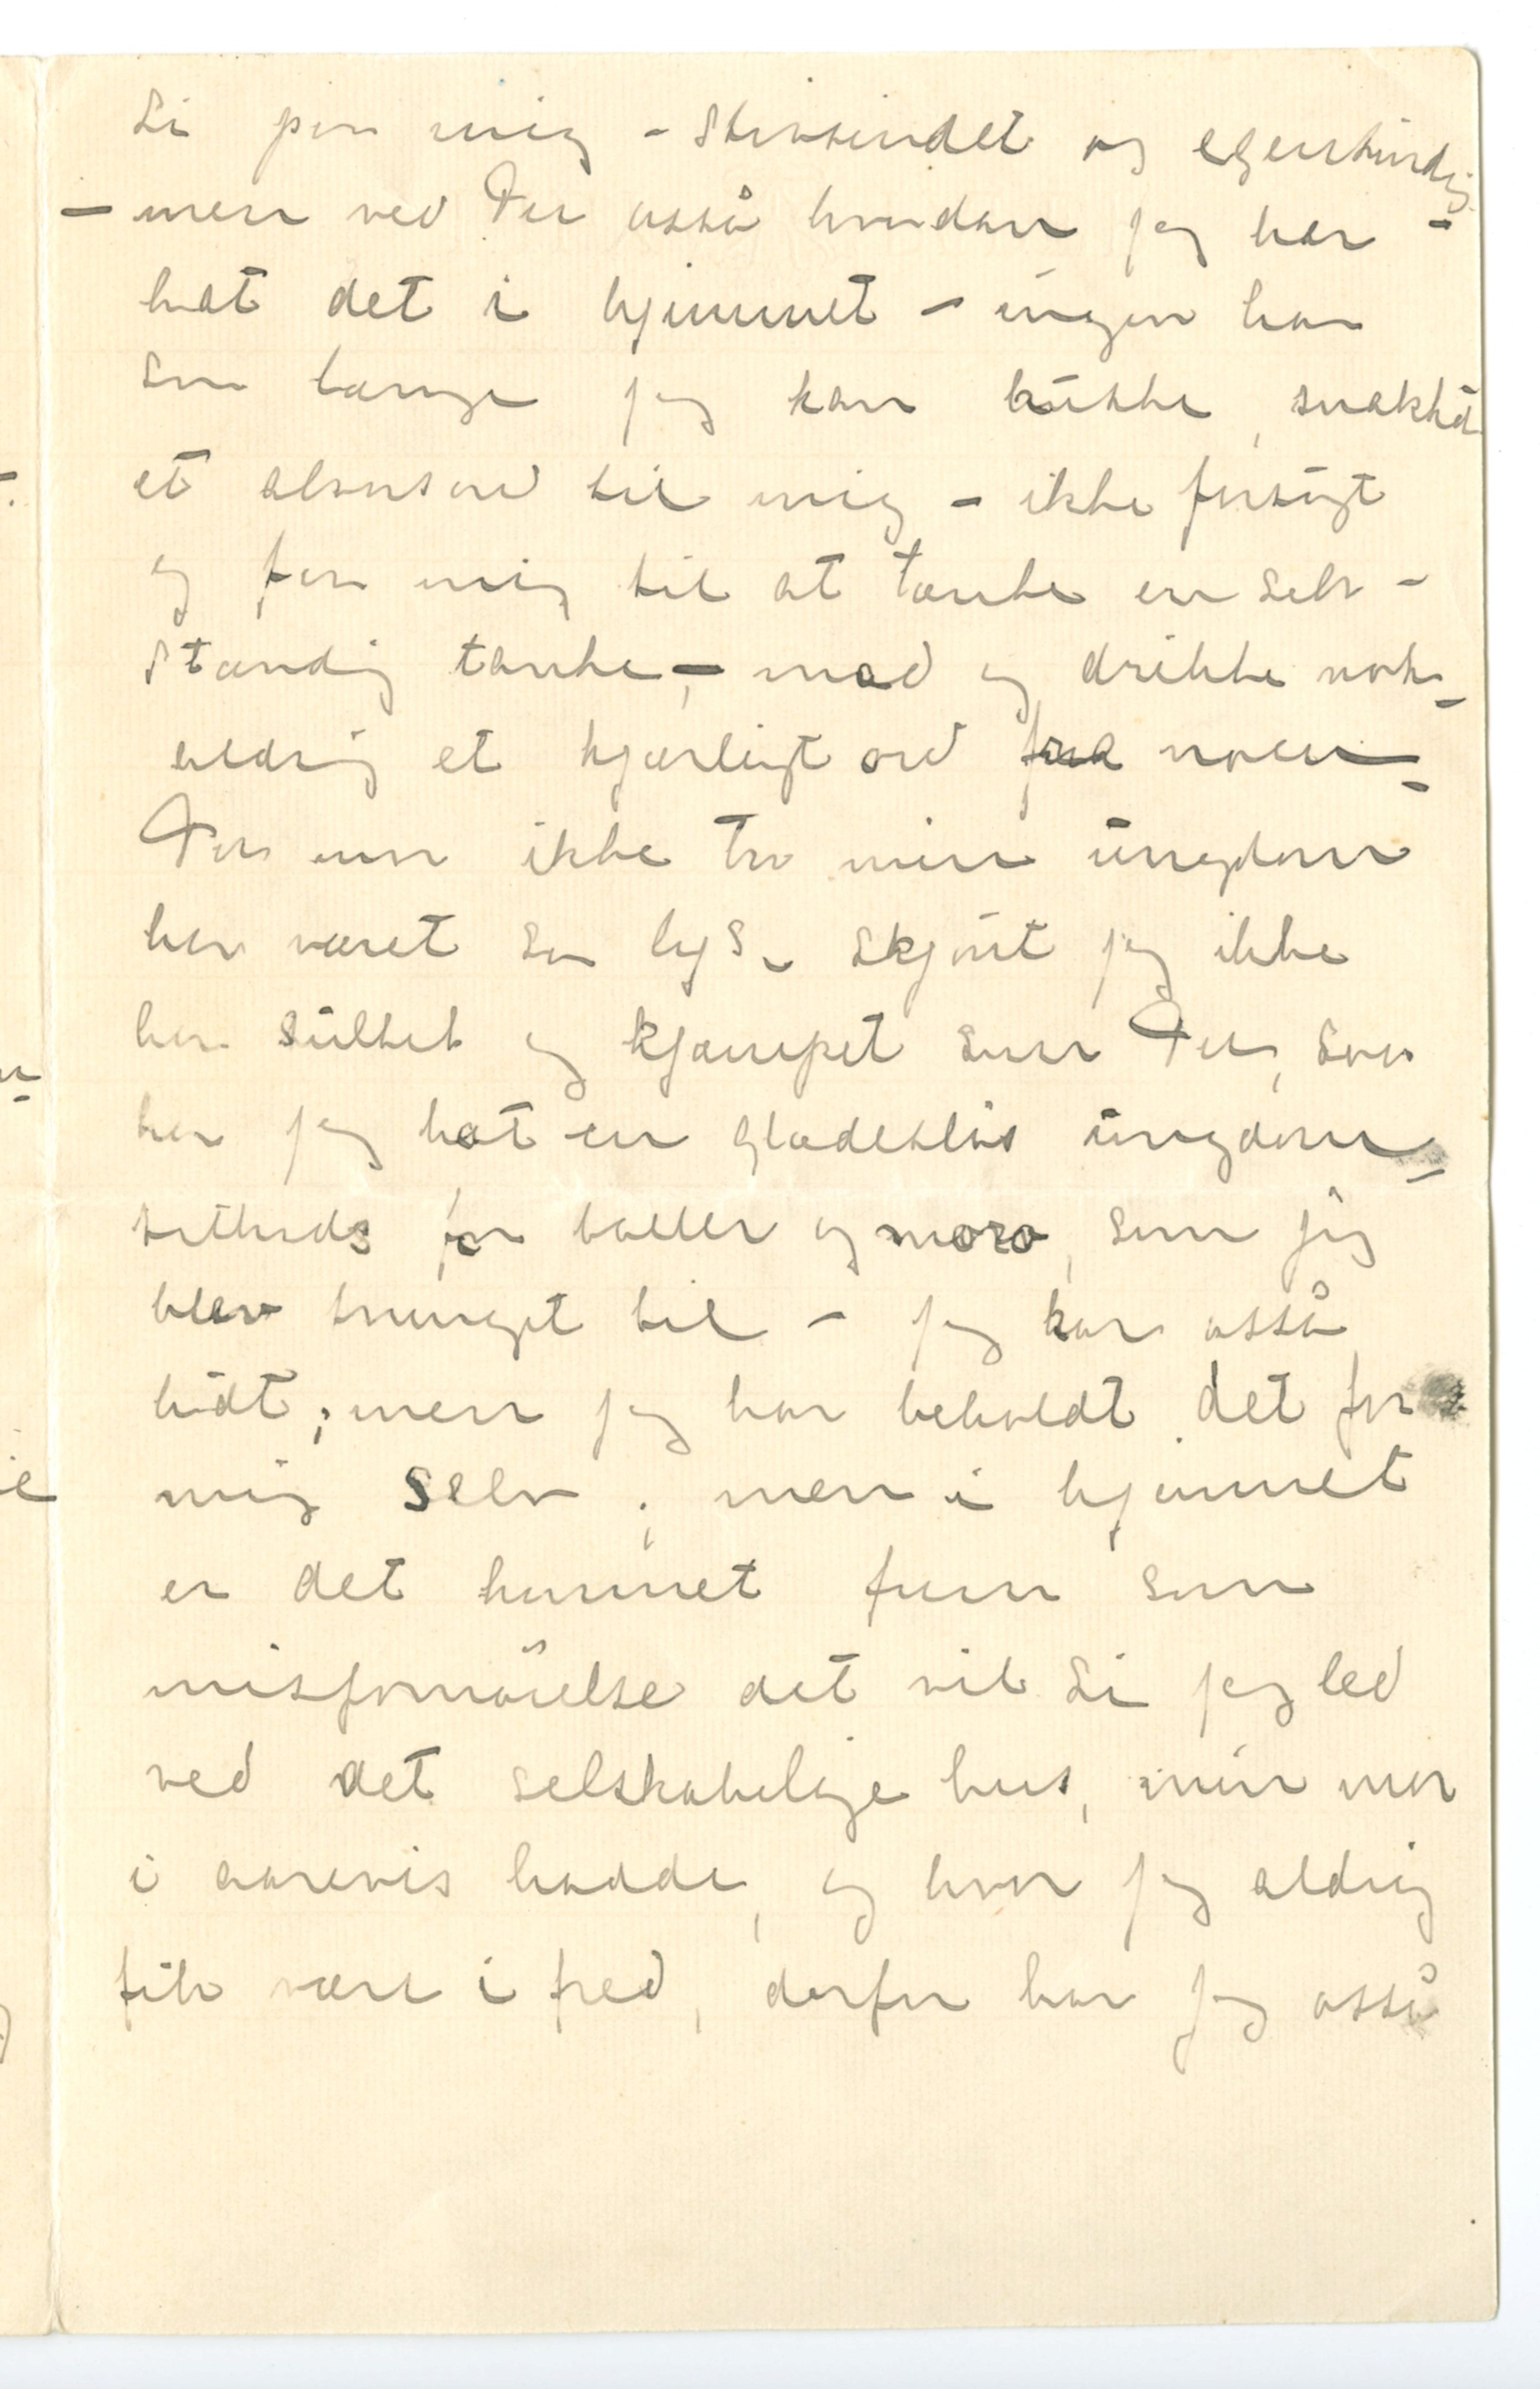 si paa mig – stivsindet og egensindig
– men ved De asså hvordan jeg har –
hat det i hjemmet – ingen har
saa længe jeg kan huske, snakket
et alvorsord til mig – ikke forsøgt
og faa mig til at tænke en selv-
stændig tanke, – mad og drikke nok –
aldrig et kjærligt ord fra noen –
De maa ikke tro min ungdom
har været saa lys – skjønt jeg ikke
har sultet og kjæmpet som De, saa
har jeg hat en glædesløs ungdom –
tiltrods for baller og moro, som jeg
blev tvunget til – jeg har asså
lidt; men jeg har beholdt det for
mig selv; men i hjemmet
er det kommet frem som
misfornøielse det vil si jeg led
ved det selskabelige hus, min mor
i aarevis hadde, og hvor jeg aldrig
fik være i fred, derfor har jeg asså